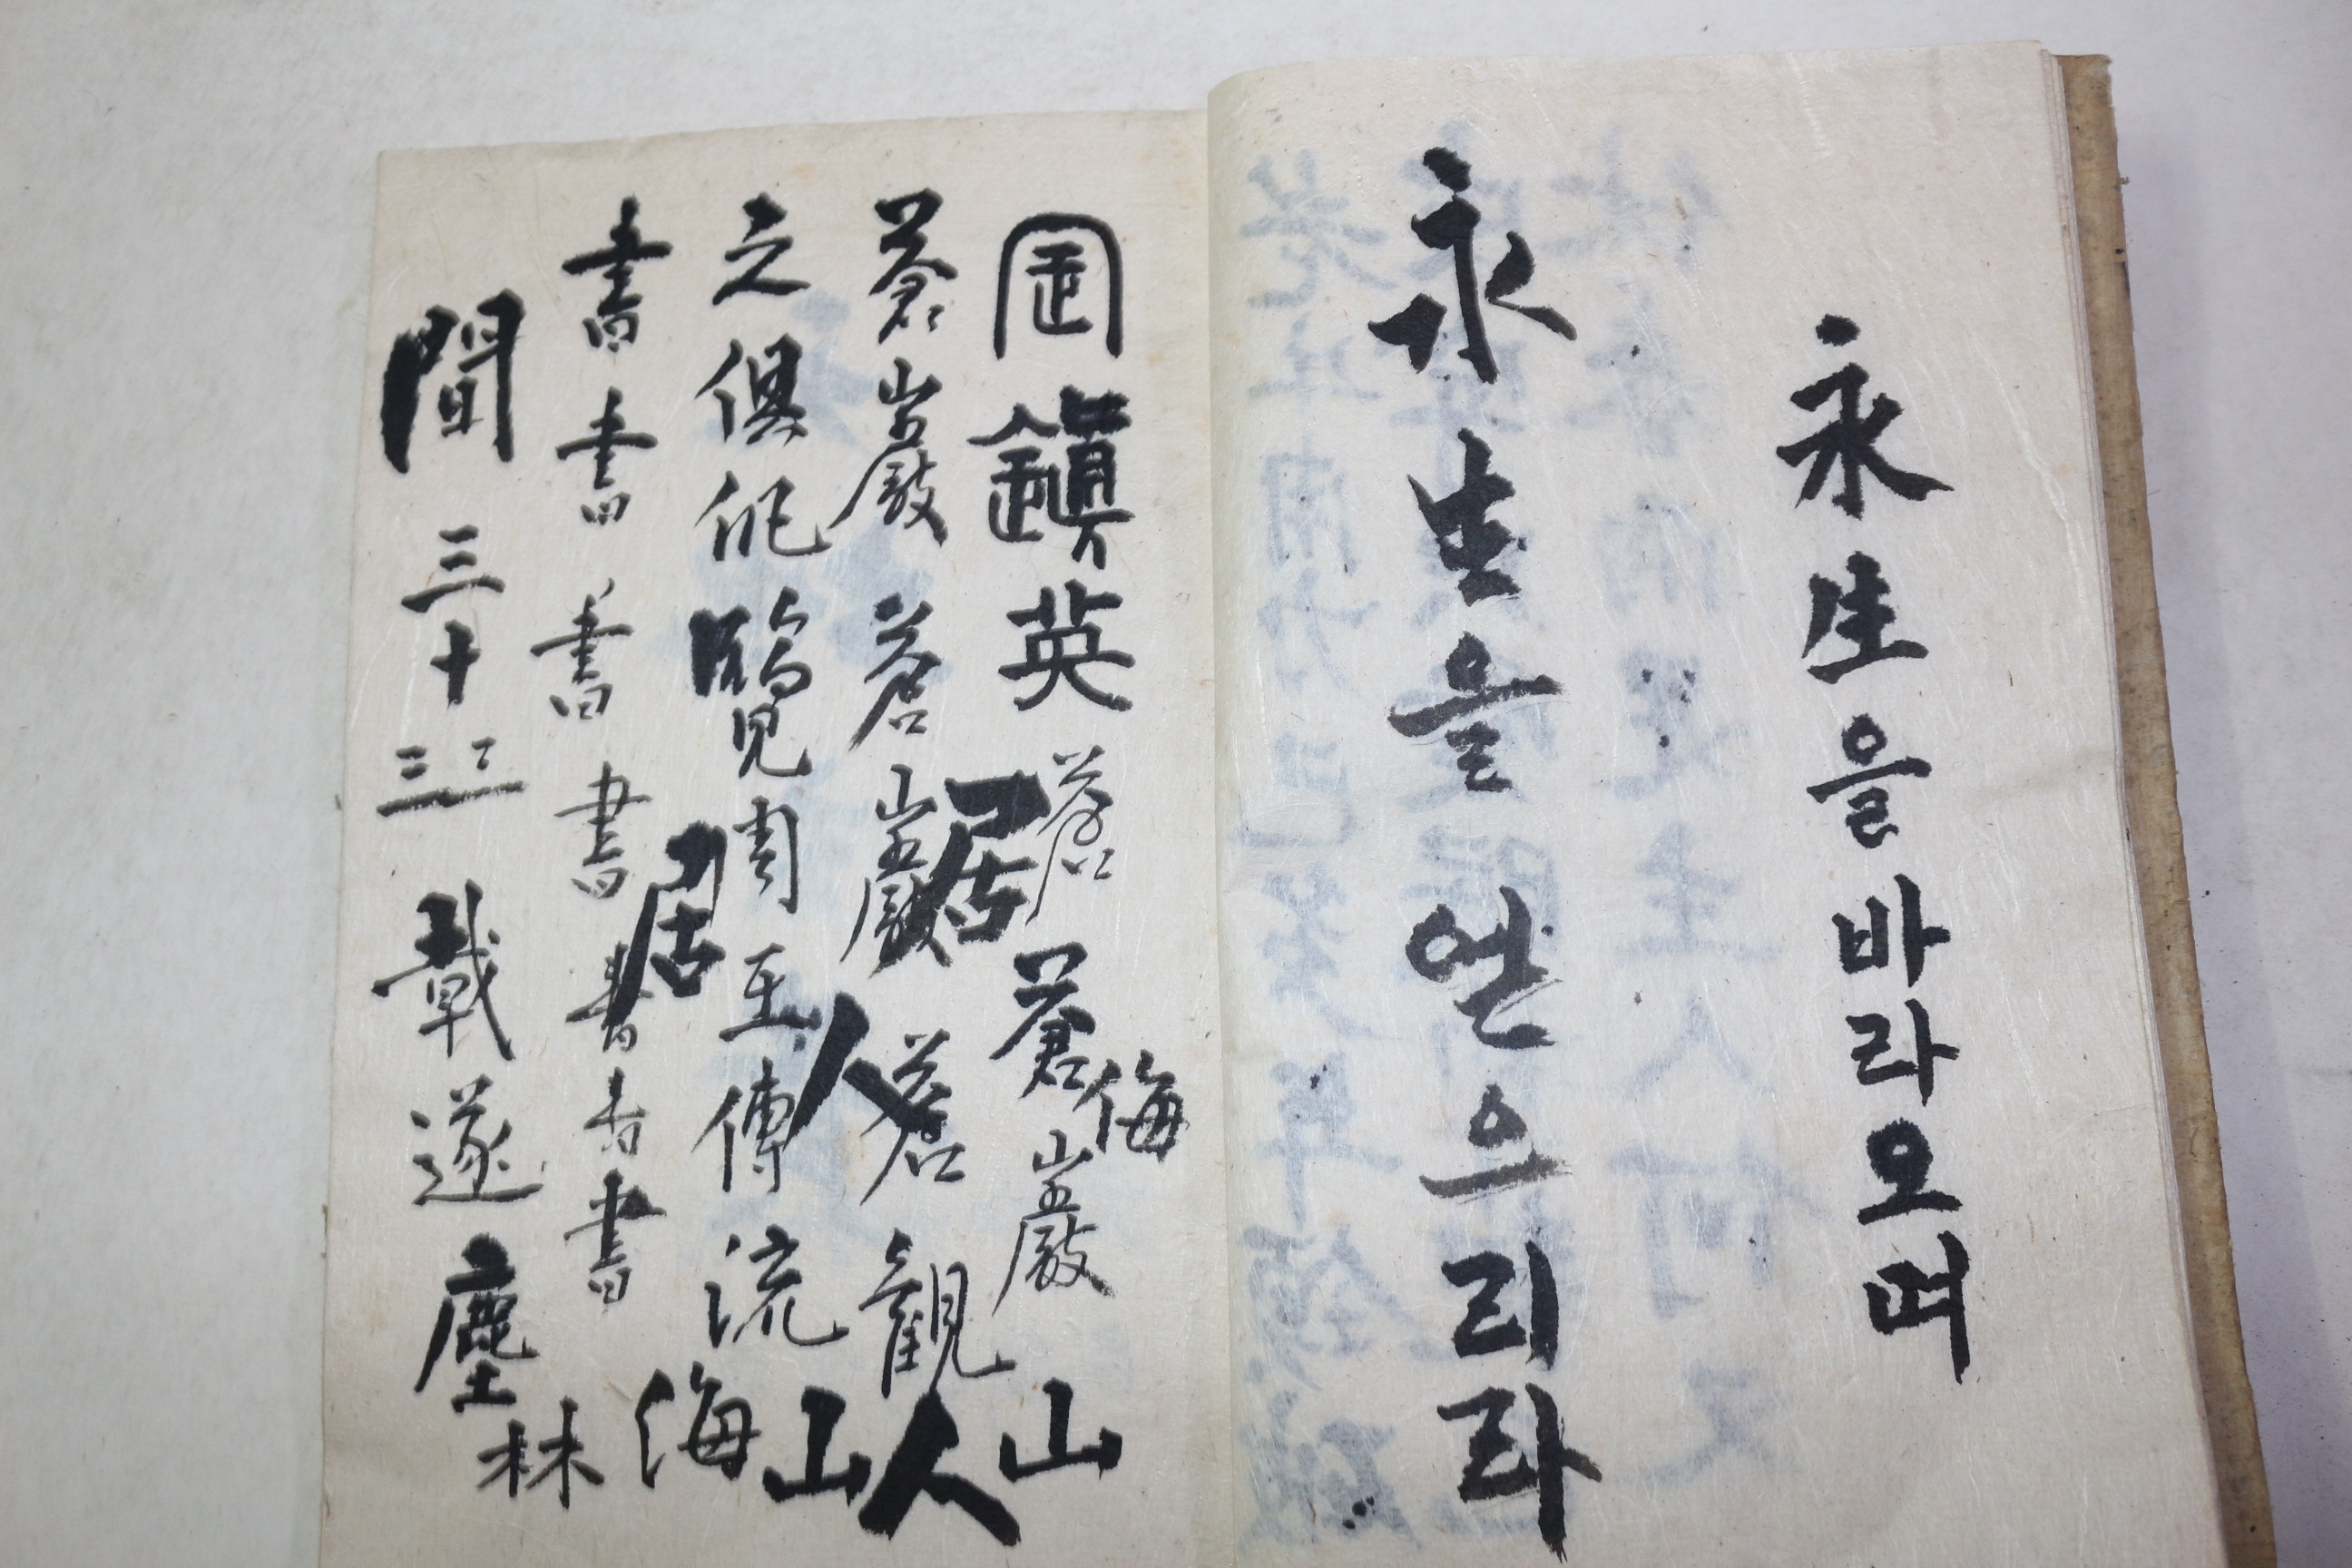 永生을바라오며
永生을얻으리라
鎭英蒼蒼巖山
侮
蒼巖蒼巖蒼觀
居
人
之俱
覽周王傳流
居
山人
海
書書書書書書書
間三十三載遂塵
林